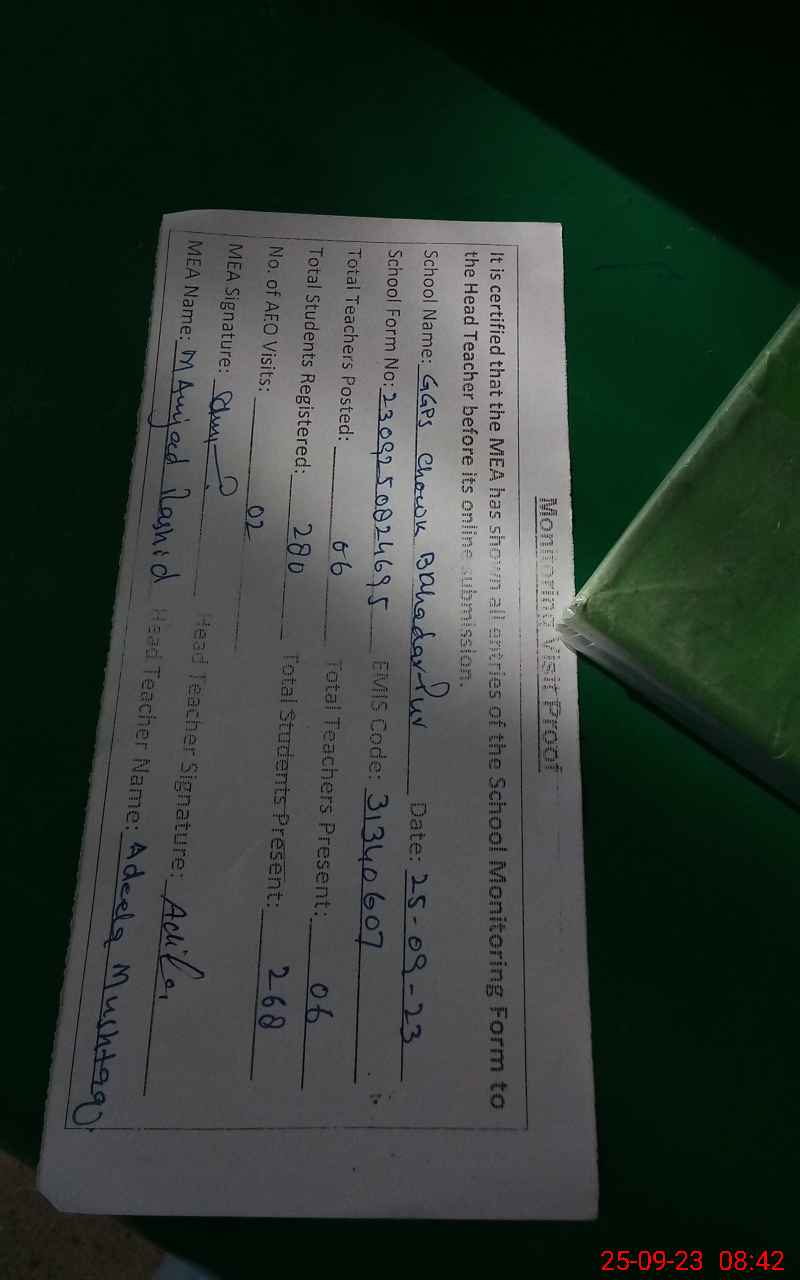 Monitoring Visit Proof
It is certified that the MEA has shown all entries of the School Monitoring Form to
the Head Teacher before its online submission.
School Name: GGPS Chowk Bahadar Pur Date: 25-09-23
School Form No: 2309250824695 EMIS Code: 31340607
Total Teachers Posted: 06 Total Teachers Present: 06
Total Students Registered: 280 Total Students Present: 268
No. of AEO Visits: 02
MEA Signature: Head Teacher Signature: Adila
MEA Name: M Amjad Rashid Head Teacher Name: Adeela Mushtaq
25-09-23 08:42